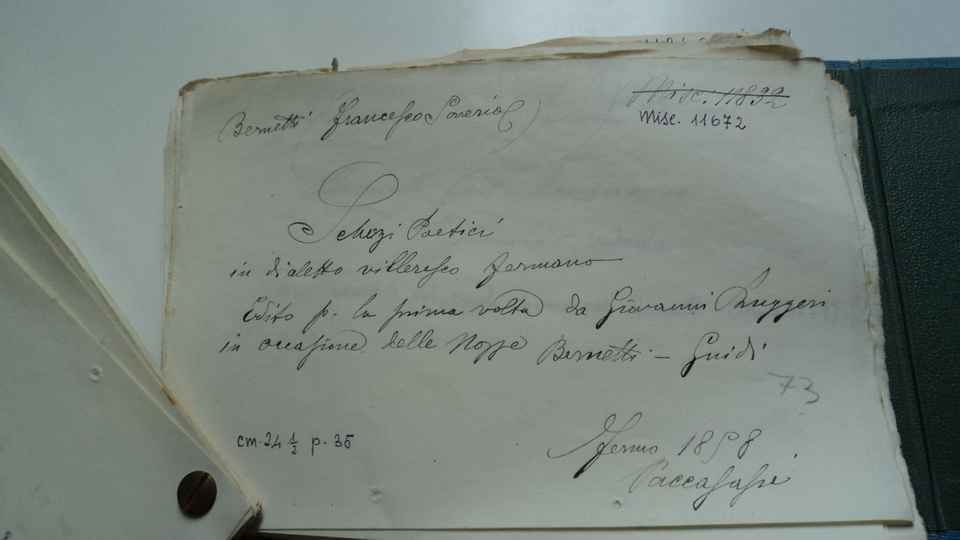 Misc. 11892
Bernetti Francesco Saverio
Misc. 11672
Scherzi Poetici
in dialetto villeresco fermano
Edito p. la prima volta da Giovanni Ruggeri
in occasione delle Nozze Bernetti – Guidi
73
cm. 24 1/2 p. 35
Fermo 1898
Paccasassi